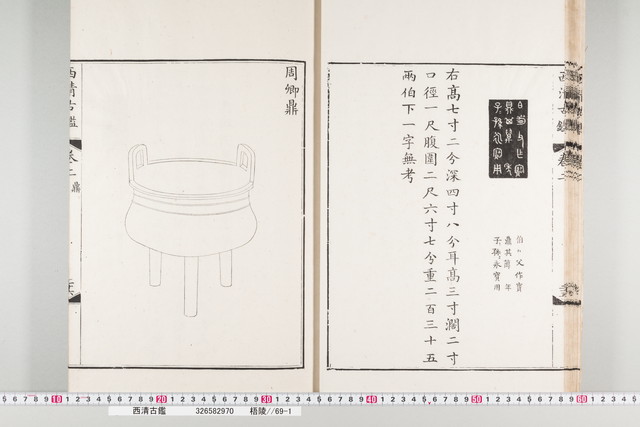 伯 父作寶
鼎其萬年
子孫永寶用
右高七寸二分深四寸八分耳高三寸濶二寸
口徑一尺腹圍二尺六寸七分重二百三十五
兩伯下一字無考
周卿鼎
西清古鑑
卷二
鼎
西清古鑑 326582970 梧陵//69-I